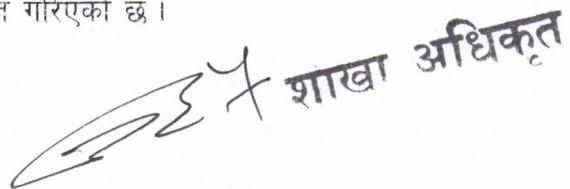 गरिएको छ ।
शाखा अधिकृत